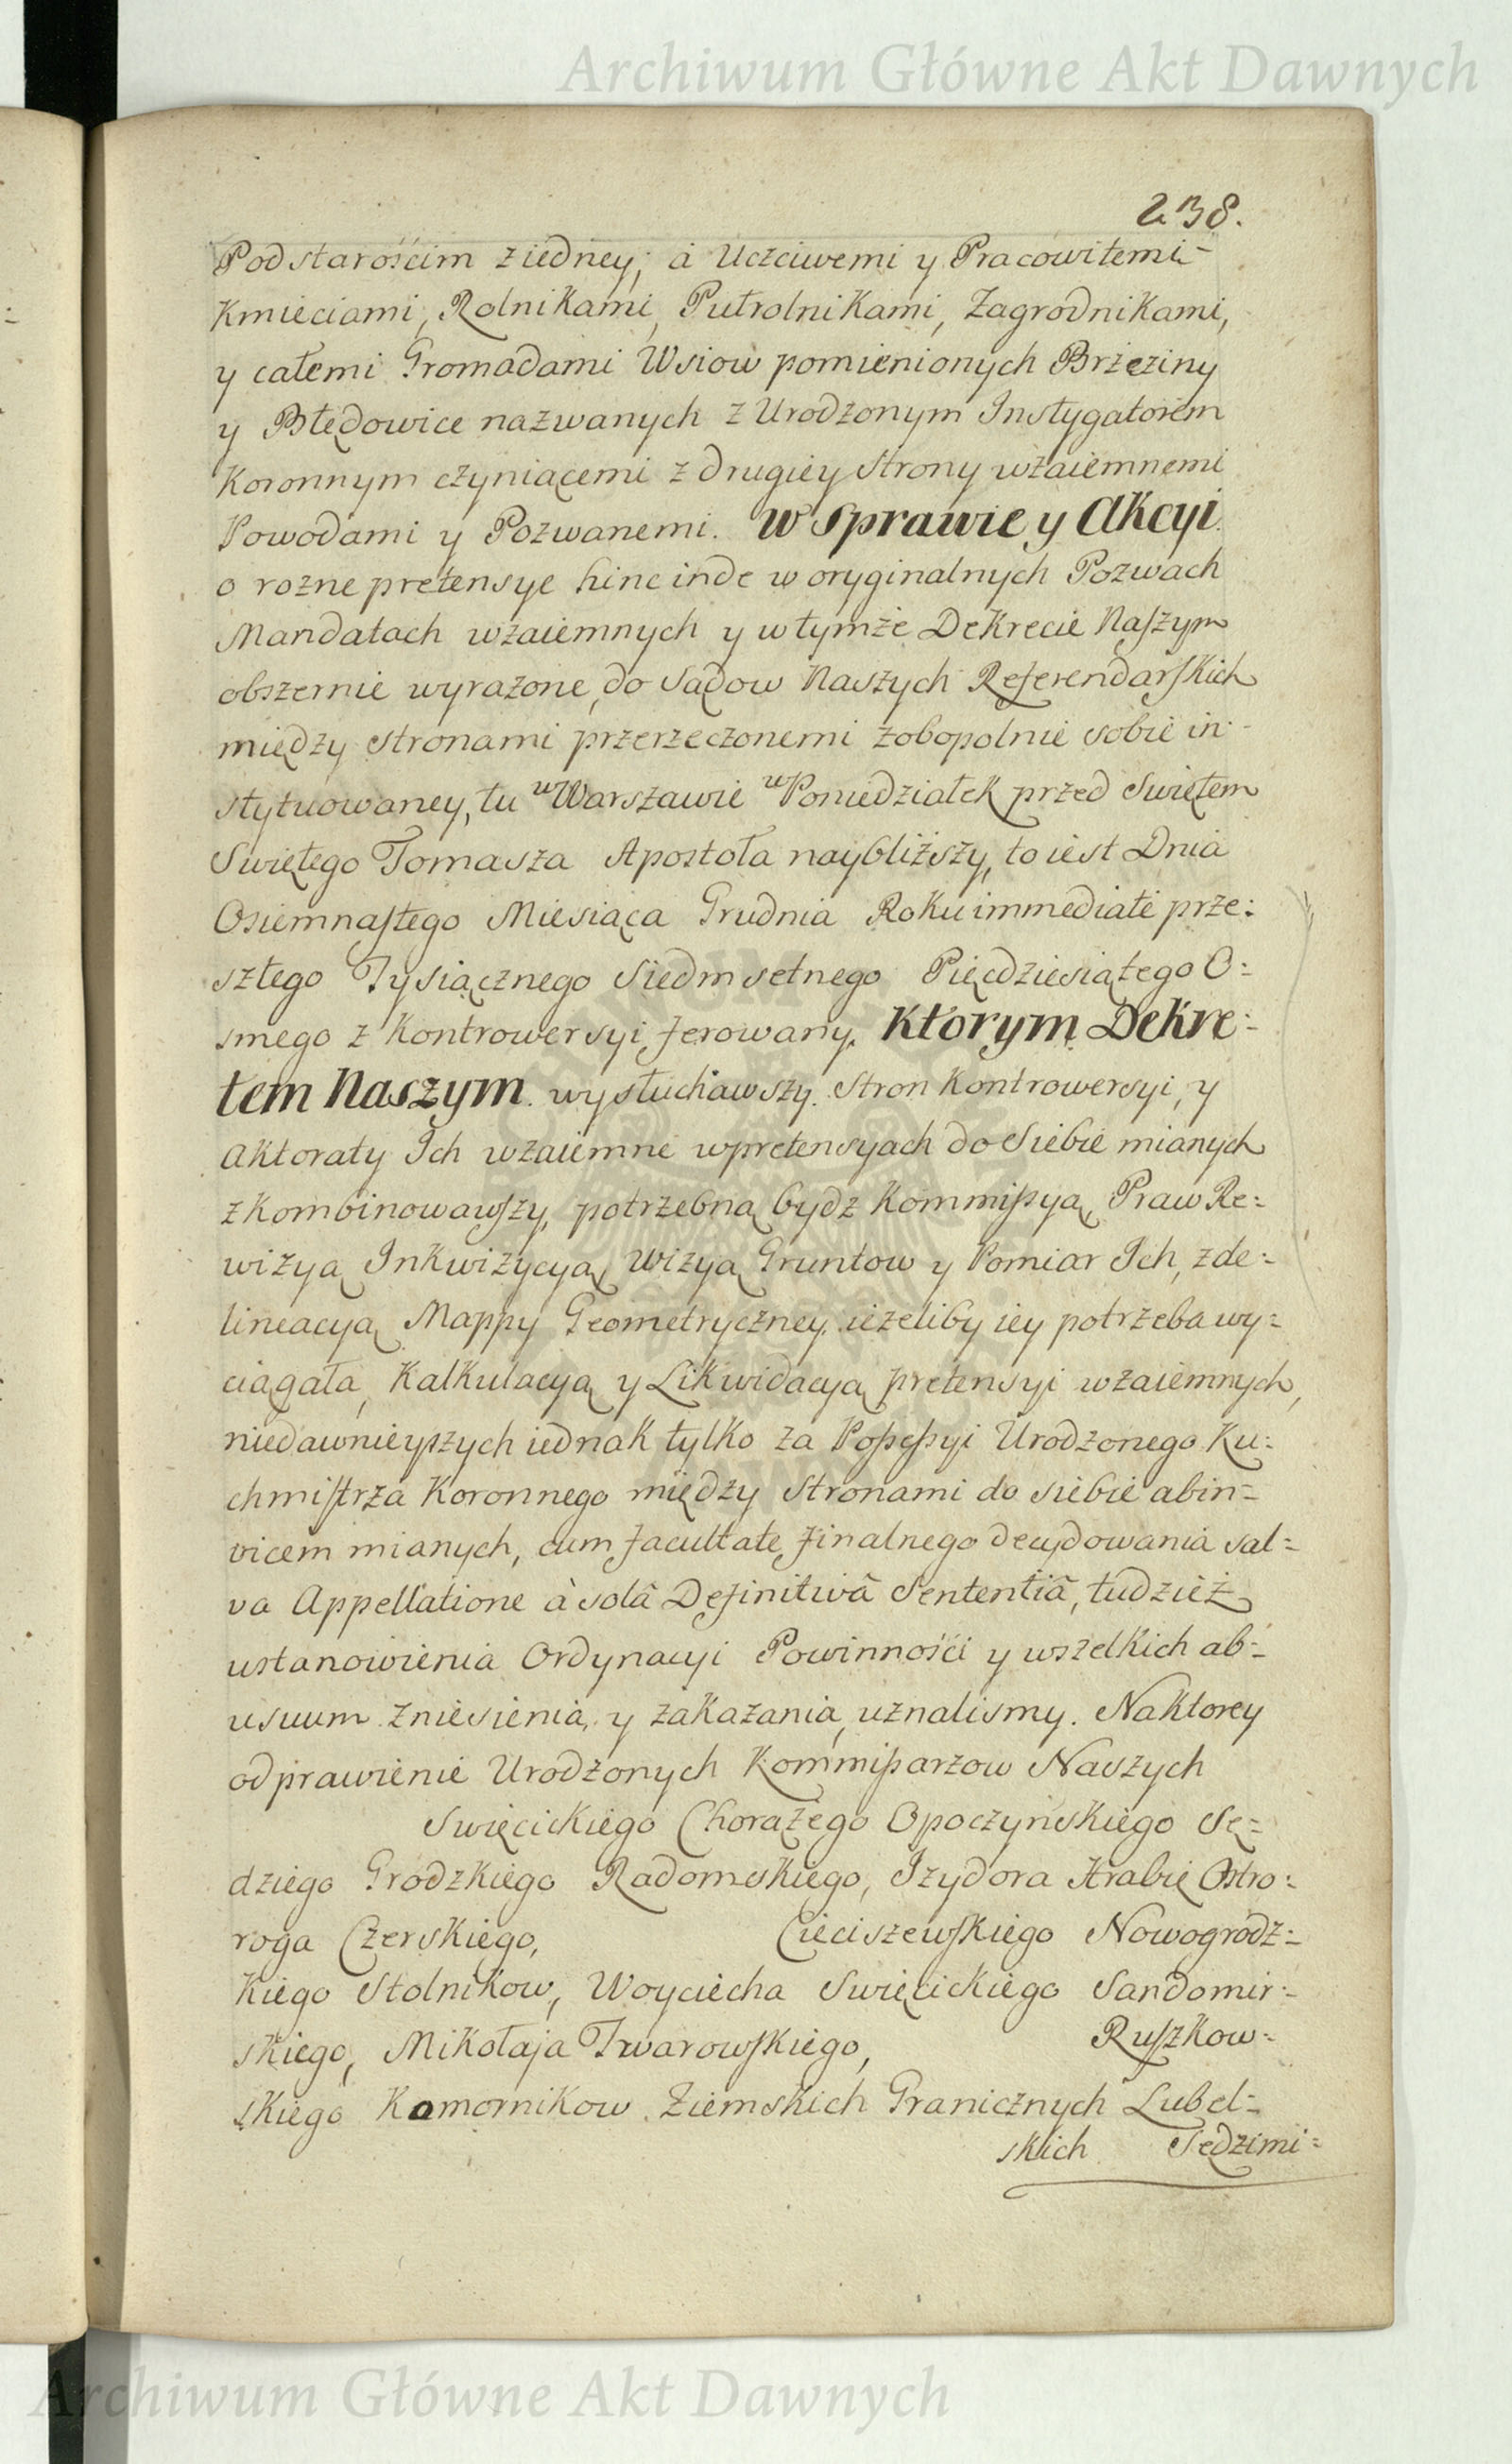 Archiwum Główne Akt Dawnych
238.
Podstarośćim z iedney, á Uczciwemi y Pracowitemi-
Kmieciami, Rolnikami, Pułrolnikami, Zagrodnikami,
y całemi Gromadami Wsiow pomienionych Brzeziny
y Błędowice nazwanych z Urodzonym Instygatorem
Koronnym czyniącemi z drugiey strony wzaiemnemi
Powodami y Pozwanemi. W Sprawie y Akcyi
o rozne pretensye hinc inde w oryginalnych Pozwach
Mandatach wzaiemnych y w tymże Dekrecie Naszym
obszernie wyrażone, do Sądow Naszych Referendarskich
między stronami przerzeczonemi zobopolnie sobie in-
stytuowaney, tu w Warszawie w Poniedziałek przed Swiętem
Swiętego Tomasza Apostoła naybliższy, to iest Dnia
Osiemnastego Miesiąca Grudnia Roku immediate prze:
szłego Tysiącznego Siedmsetnego Pięćdziesiątego O:
smego z Kontrowersyi ferowany. Ktorym Dekre:
tem Naszym wysłuchawszy Stron Kontrowersyi, y
Aktoraty Ich wzaiemne w pretensyach do Siebie mianych
zkombinowawszy, potrzebną bydz Kommissyą, Praw Re:
wizyą Inkwizycyą, Wizyą Gruntow y Pomiar Ich, z de:
lineacyą Mappy Geometryczney, ieżeliby iey potrzeba wy:
ciągała, Kalkulacyą y Likwidacyą pretensyi wzaiemnych,
niedawnieyszych iednak tylko za Possessyi Urodzonego Ku:
chmistrza Koronnego między Stronami do siebie abin=
vicem mianych, cum facultate finalnego decydowania sal=
va Appellatione à solâ Definitivâ Sententiâ, tudzież
ustanowienia Ordynacyi Powinnośći y wszelkich ab=
usuum zniesienia, y zakazania, uznalismy. Na ktorey
odprawienie Urodzonych Kommissarzow Naszych
Swięcickiego Chorążego Opoczyńskiego Sę=
dziego Grodzkiego Radomskiego, Izydora Hrabię Ostro:
roga Czerskiego, Cieciszewskiego Nowogrodz:
kiego Stolnikow, Woyciecha Swięcickiego Sandomir-
skiego, Mikołaja Twarowskiego, Ruszkow-
skiego Komornikow Ziemskich Granicznych Lubel=
skich Sędzimi=
Archiwum Główne Akt Dawnych